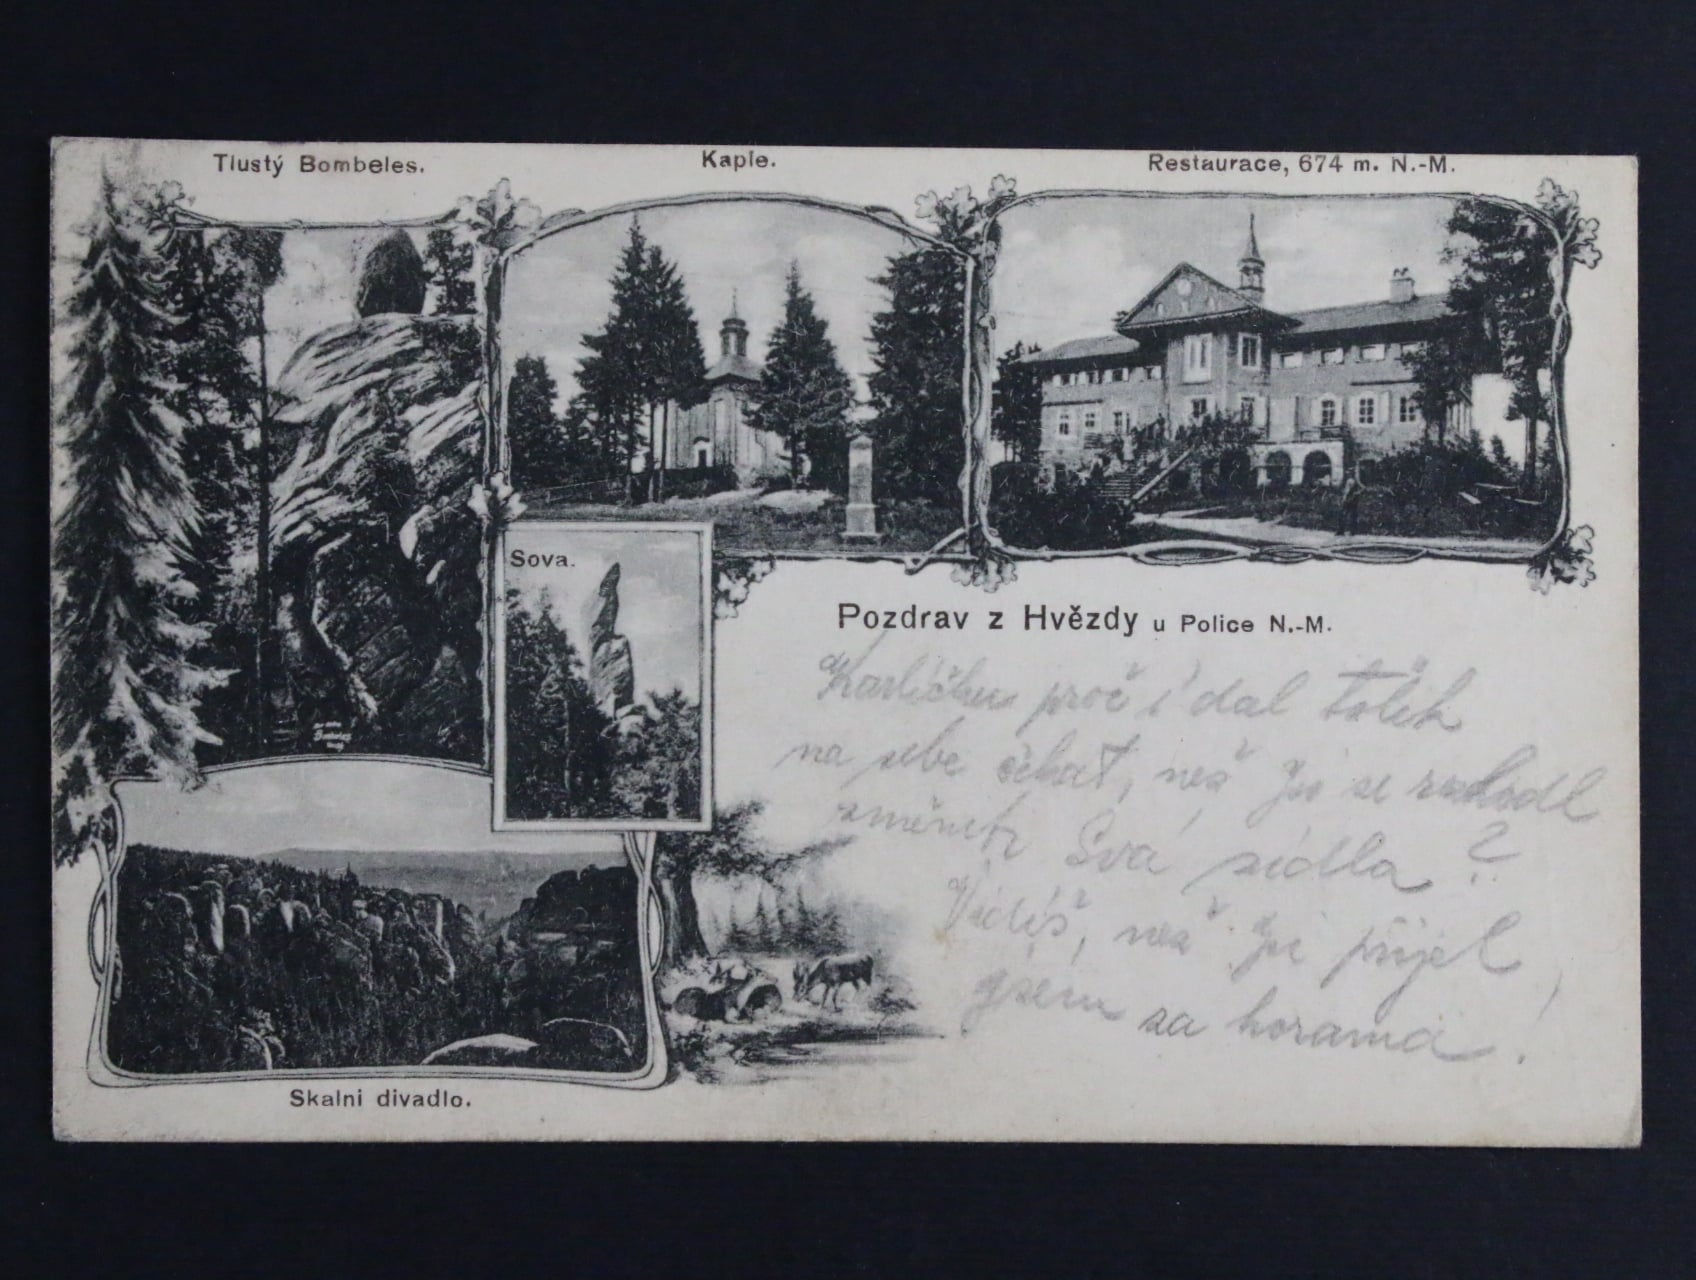 Tlustý Bombeles.
Kaple.
Restaurace, 674 m. N.-M.
Sova.
Pozdrav z Hvězdy u Police N.-M.
Karlíčku proč's dal tolik
na sebe čekat, než Jsi se
změnit Svá sídla?
Vidíš, než Jsi přijel
jsem za horama!
Skalni divadlo.